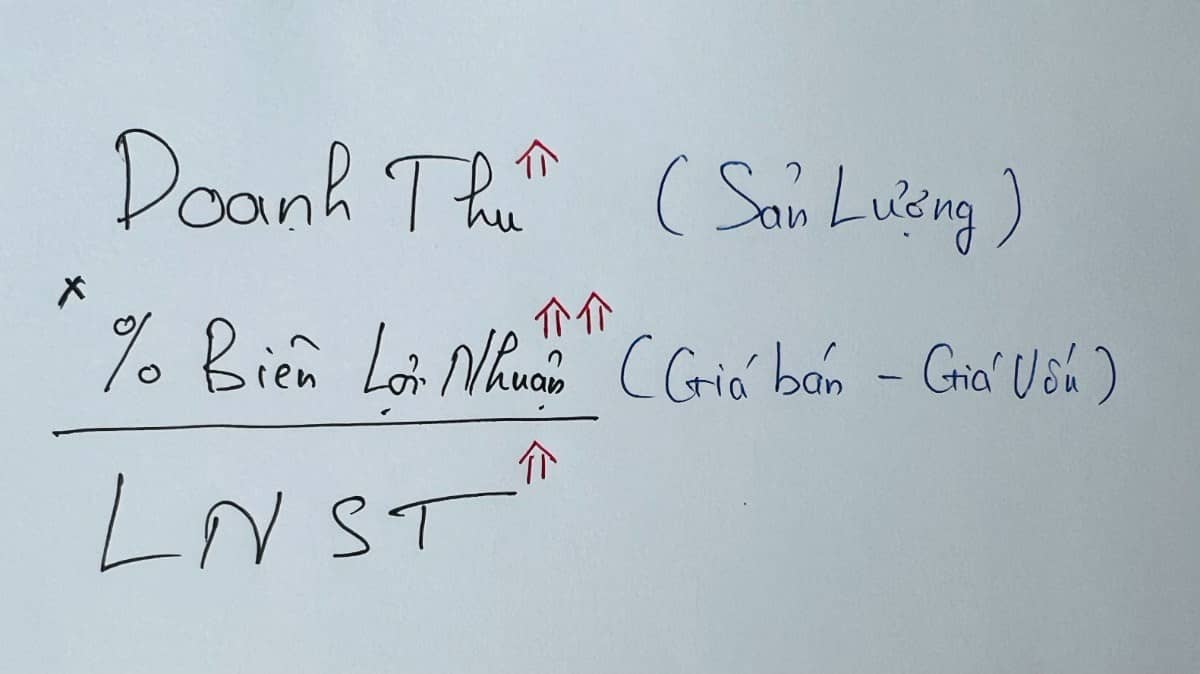 Doanh Thu ⇑ (Sản Lượng)
x
% Biên Lợi Nhuận ⇑⇑ (Giá bán - Giá Vốn)
LNST ⇑